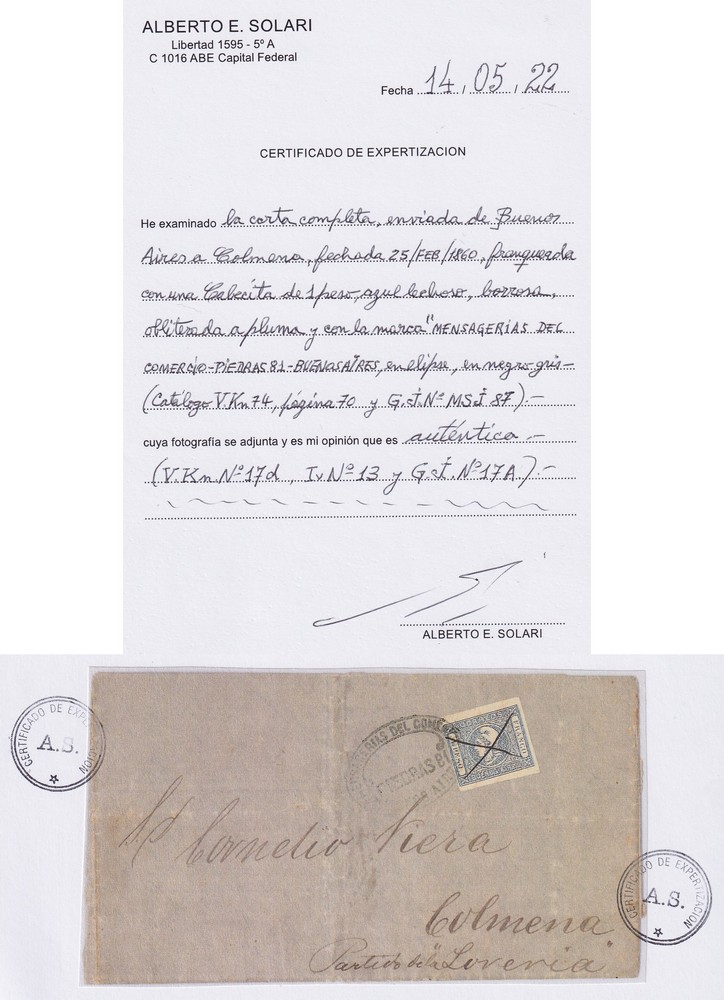 ALBERTO E. SOLARI
Libertad 1595 - 5º A
C 1016 ABE Capital Federal
Fecha 14, 05, 22
CERTIFICADO DE EXPERTIZACION
He examinado la carta completa, enviada de Buenos
Aires a Colmena, fechada 25/FEB/1860, franqueada
con una Cabecita de 1 peso, azul lechoso, borrosa,
obliterada a pluma y con la marca "MENSAGERIAS DEL
COMERCIO-PIEDRAS 81-BUENOS AIRES, en elipse, en negro gris-
(Catálogo V.Kn 74, página 70 y G.J. Nº MSJ 87).-
cuya fotografía se adjunta y es mi opinión que es auténtica.-
(V.Kn Nº 17d, Iv Nº 13 y G.J. Nº 17A).-
ALBERTO E. SOLARI
CERTIFICADO DE EXPERTIZACION
A.S.
DEL COME
PIEDRAS 8
FRANCO
Sr Cornelio Viera
Colmena
Partido de la "Loveria"
CERTIFICADO DE EXPERTIZACION
A.S.